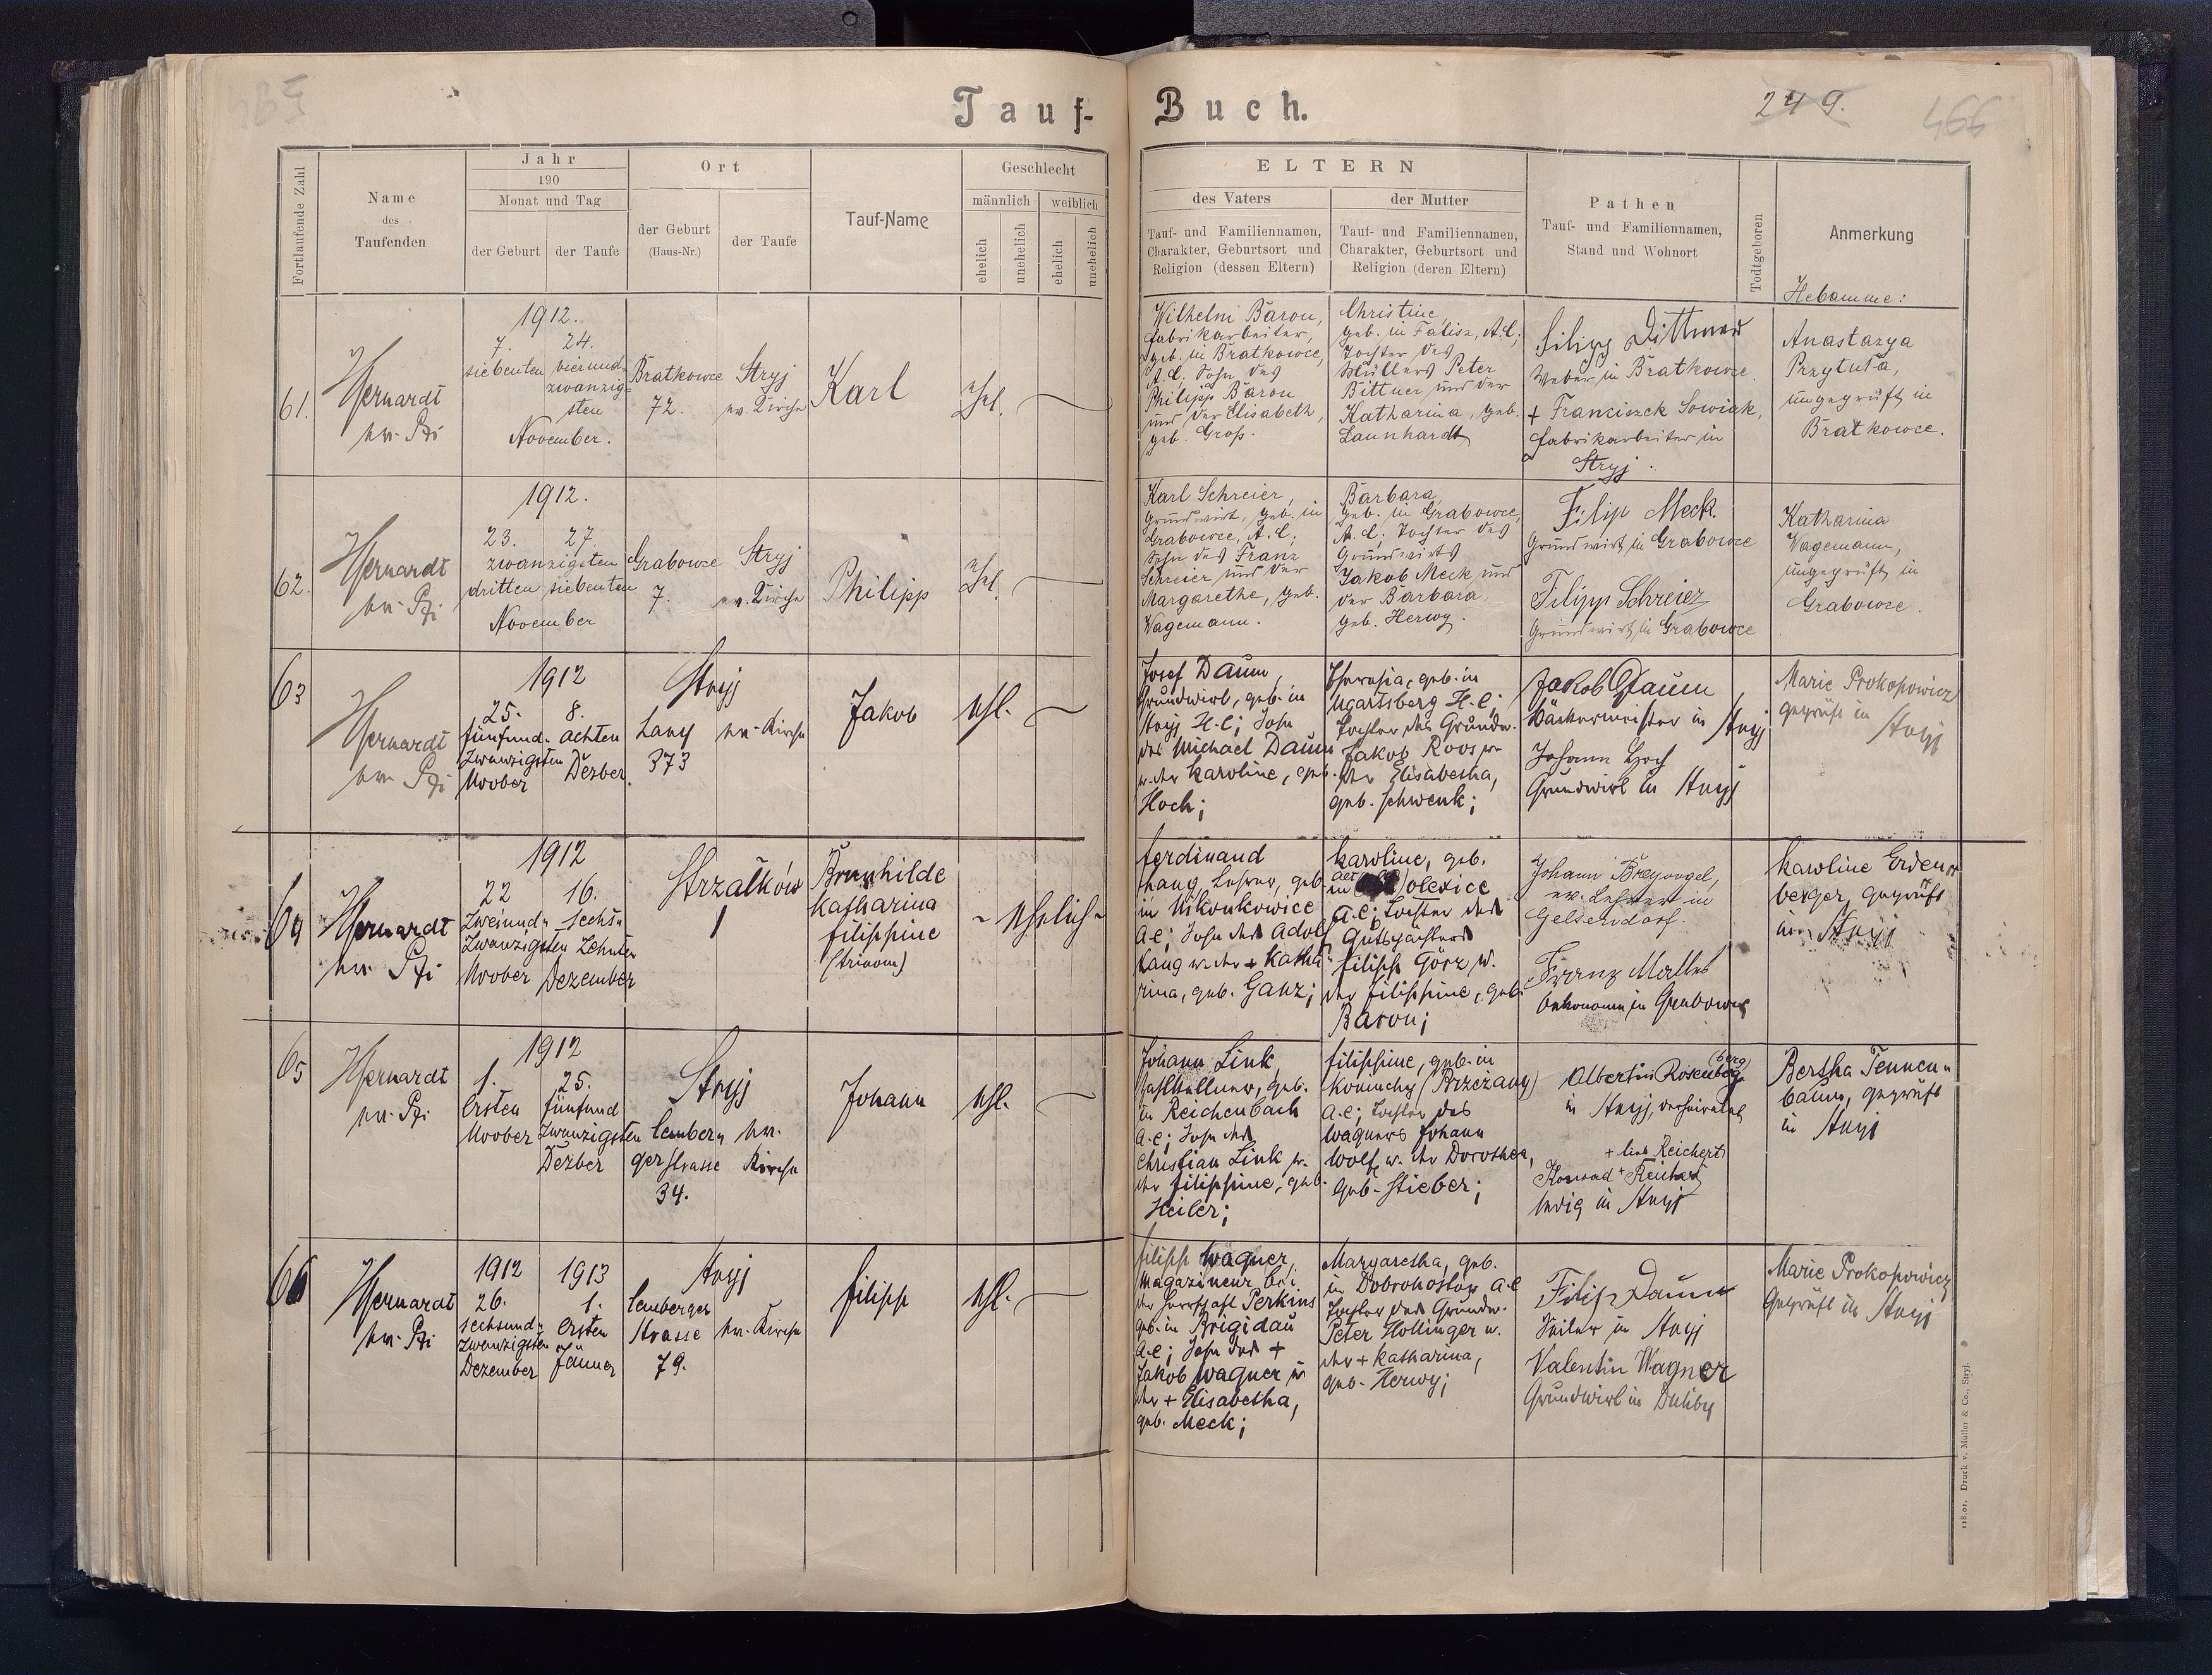 Tauf-Buch.
249.
499
Fortlaufende Zahl
Name
des
Taufenden
Jahr
190
Monat und Tag
der Geburt
der Taufe
Ort
der Geburt
(Haus-Nr.)
der Taufe
Tauf-Name
Geschlecht
männlich
weiblich
ehelich
unehelich
ehelich
unehelich
ELTERN
des Vaters
Tauf- und Familiennamen,
Charakter, Geburtsort und
Religion (dessen Eltern)
der Mutter
Tauf- und Familiennamen,
Charakter, Geburtsort und
Religion (deren Eltern)
Pathen
Tauf- und Familiennamen,
Stand und Wohnort
Todtgeboren
Anmerkung
Hebamme:
61.
1912.
7.
siebenten
24.
vierund-
zwanzig-
sten
November.
Bratkowce
72.
Stryj
ev. Kirche
Karl
ehel.
Wilhelm Baron,
Fabrikarbeiter,
geb. in Bratkowce,
A.C; Sohn des
Philipp Baron
und der Elisabeth,
geb. Groß.
Christine,
geb. in Falisz, A.C;
Tochter des
Müllers Peter
Bittner und der
Katharina, geb.
Launhardt
Filipp Dittmer
Weber in Bratkowce.
+ Franciszek Sowiak,
Fabrikarbeiter in
Stryj.
Anastazya
Przytuła,
ungeprüft in
Bratkowce.
62.
1912.
23.
27.
zwanzigsten
dritten siebenten
November
Grabowce
7.
Stryj
ev. Kirche
Philipp
ehel.
Karl Schreier,
Grundwirt, geb. in
Grabowce, A.C;
Sohn des Franz
Schreier und der
Margarethe, geb.
Wagemann.
Barbara,
geb. in Grabowce,
A.C; Tochter des
Grundwirts
Jakob Meck und
der Barbara
geb. Herwy.
Filip Meck.
Grundwirt in Grabowce
Filipp Schreier
Grundwirt in Grabowce
Katharina
Wagemann,
ungeprüft in
Grabowce.
63
1912
25.
fünfund-
zwanzigsten
Novber
8.
achten
Dezber.
Stryj
Lany
373
ev. Kirche
Jakob
ehel.
Josef Daum,
Grundwirt, geb. in
Stryj H.C; Sohn
des Michael Daum
u. der Karoline, geb.
Hoch;
Theresia, geb. in
Ugartsberg H.C;
Tochter des Grundw.
Jakob Roos u.
der Elisabetha,
geb. Schwenk;
Jakob Daum,
Bäckermeister in Stryj
Johann Hoch
Grundwirt in Stryj
Marie Prokopowicz
geprüft in
Stryj
64
1912
22
zweiund-
zwanzigsten
Novber
16.
sechs-
zehnten
Dezember
Strzałków
1
Brunhilde
Katharina
Filippine
(trinom)
- ehelich -
Ferdinand
Lang, Lehrer, geb.
in Mikonkowice
A.C; Sohn des Adolf
Lang u. der + Katha-
rina, geb. Ganz;
Karoline, geb.
in Olexice
A.C; Tochter des
Gutspächters
Filipp Görz u.
der Filippine, geb.
Baron;
Johann Breyvogel,
ev. Lehrer in
Gelsendorf.
Franz Mallet
Oekonom in Grabowce
Karoline Erden-
berger, geprüft
in Stryj
65
1912
1.
ersten
Novber
25.
fünfund
zwanzigsten
Dezber
Stryj
Lember-
gerstrasse
34.
ev.
Kirche
Johann
ehel.
Johann Link,
Zahlkellner, geb.
in Reichenbach
A.C; Sohn des
Christian Link u.
der Filippine, geb.
Heiler;
Filippine, geb. in
Koniuchy (Brzeżany)
A.C; Tochter des
Wagners Johann
Wolf u. der Dorothea,
geb. Stieber;
Albertin Rosenberg
(berg)
in Stryj, verheiratet
+ Reichert
Konrad + Reichert
ledig in Stryj
Bertha Tennen-
baum, geprüft
in Stryj
66
1912
26.
sechsund-
zwanzigsten
Dezember
1913
1.
ersten
Jänner
Stryj
Lemberger
Strasse
79.
ev. Kirche
Filipp
ehel.
Filipp Wagner,
Magazineur bei
der Herrschaft Perkins
geb. in Brigidau
A.C; Sohn des +
Jakob Wagner u.
der + Elisabetha,
geb. Meck;
Margaretha, geb.
in Dobrohostów A.C
Tochter des Grundw.
Peter Hollinger u.
der + Katharina,
geb. Herwy;
Filip Daum
Seiler in Stryj
Valentin Wagner
Grundwirt in Duliby
Marie Prokopowicz
geprüft in Stryj
118.01. Druck v. Müller & Co., Stryj.